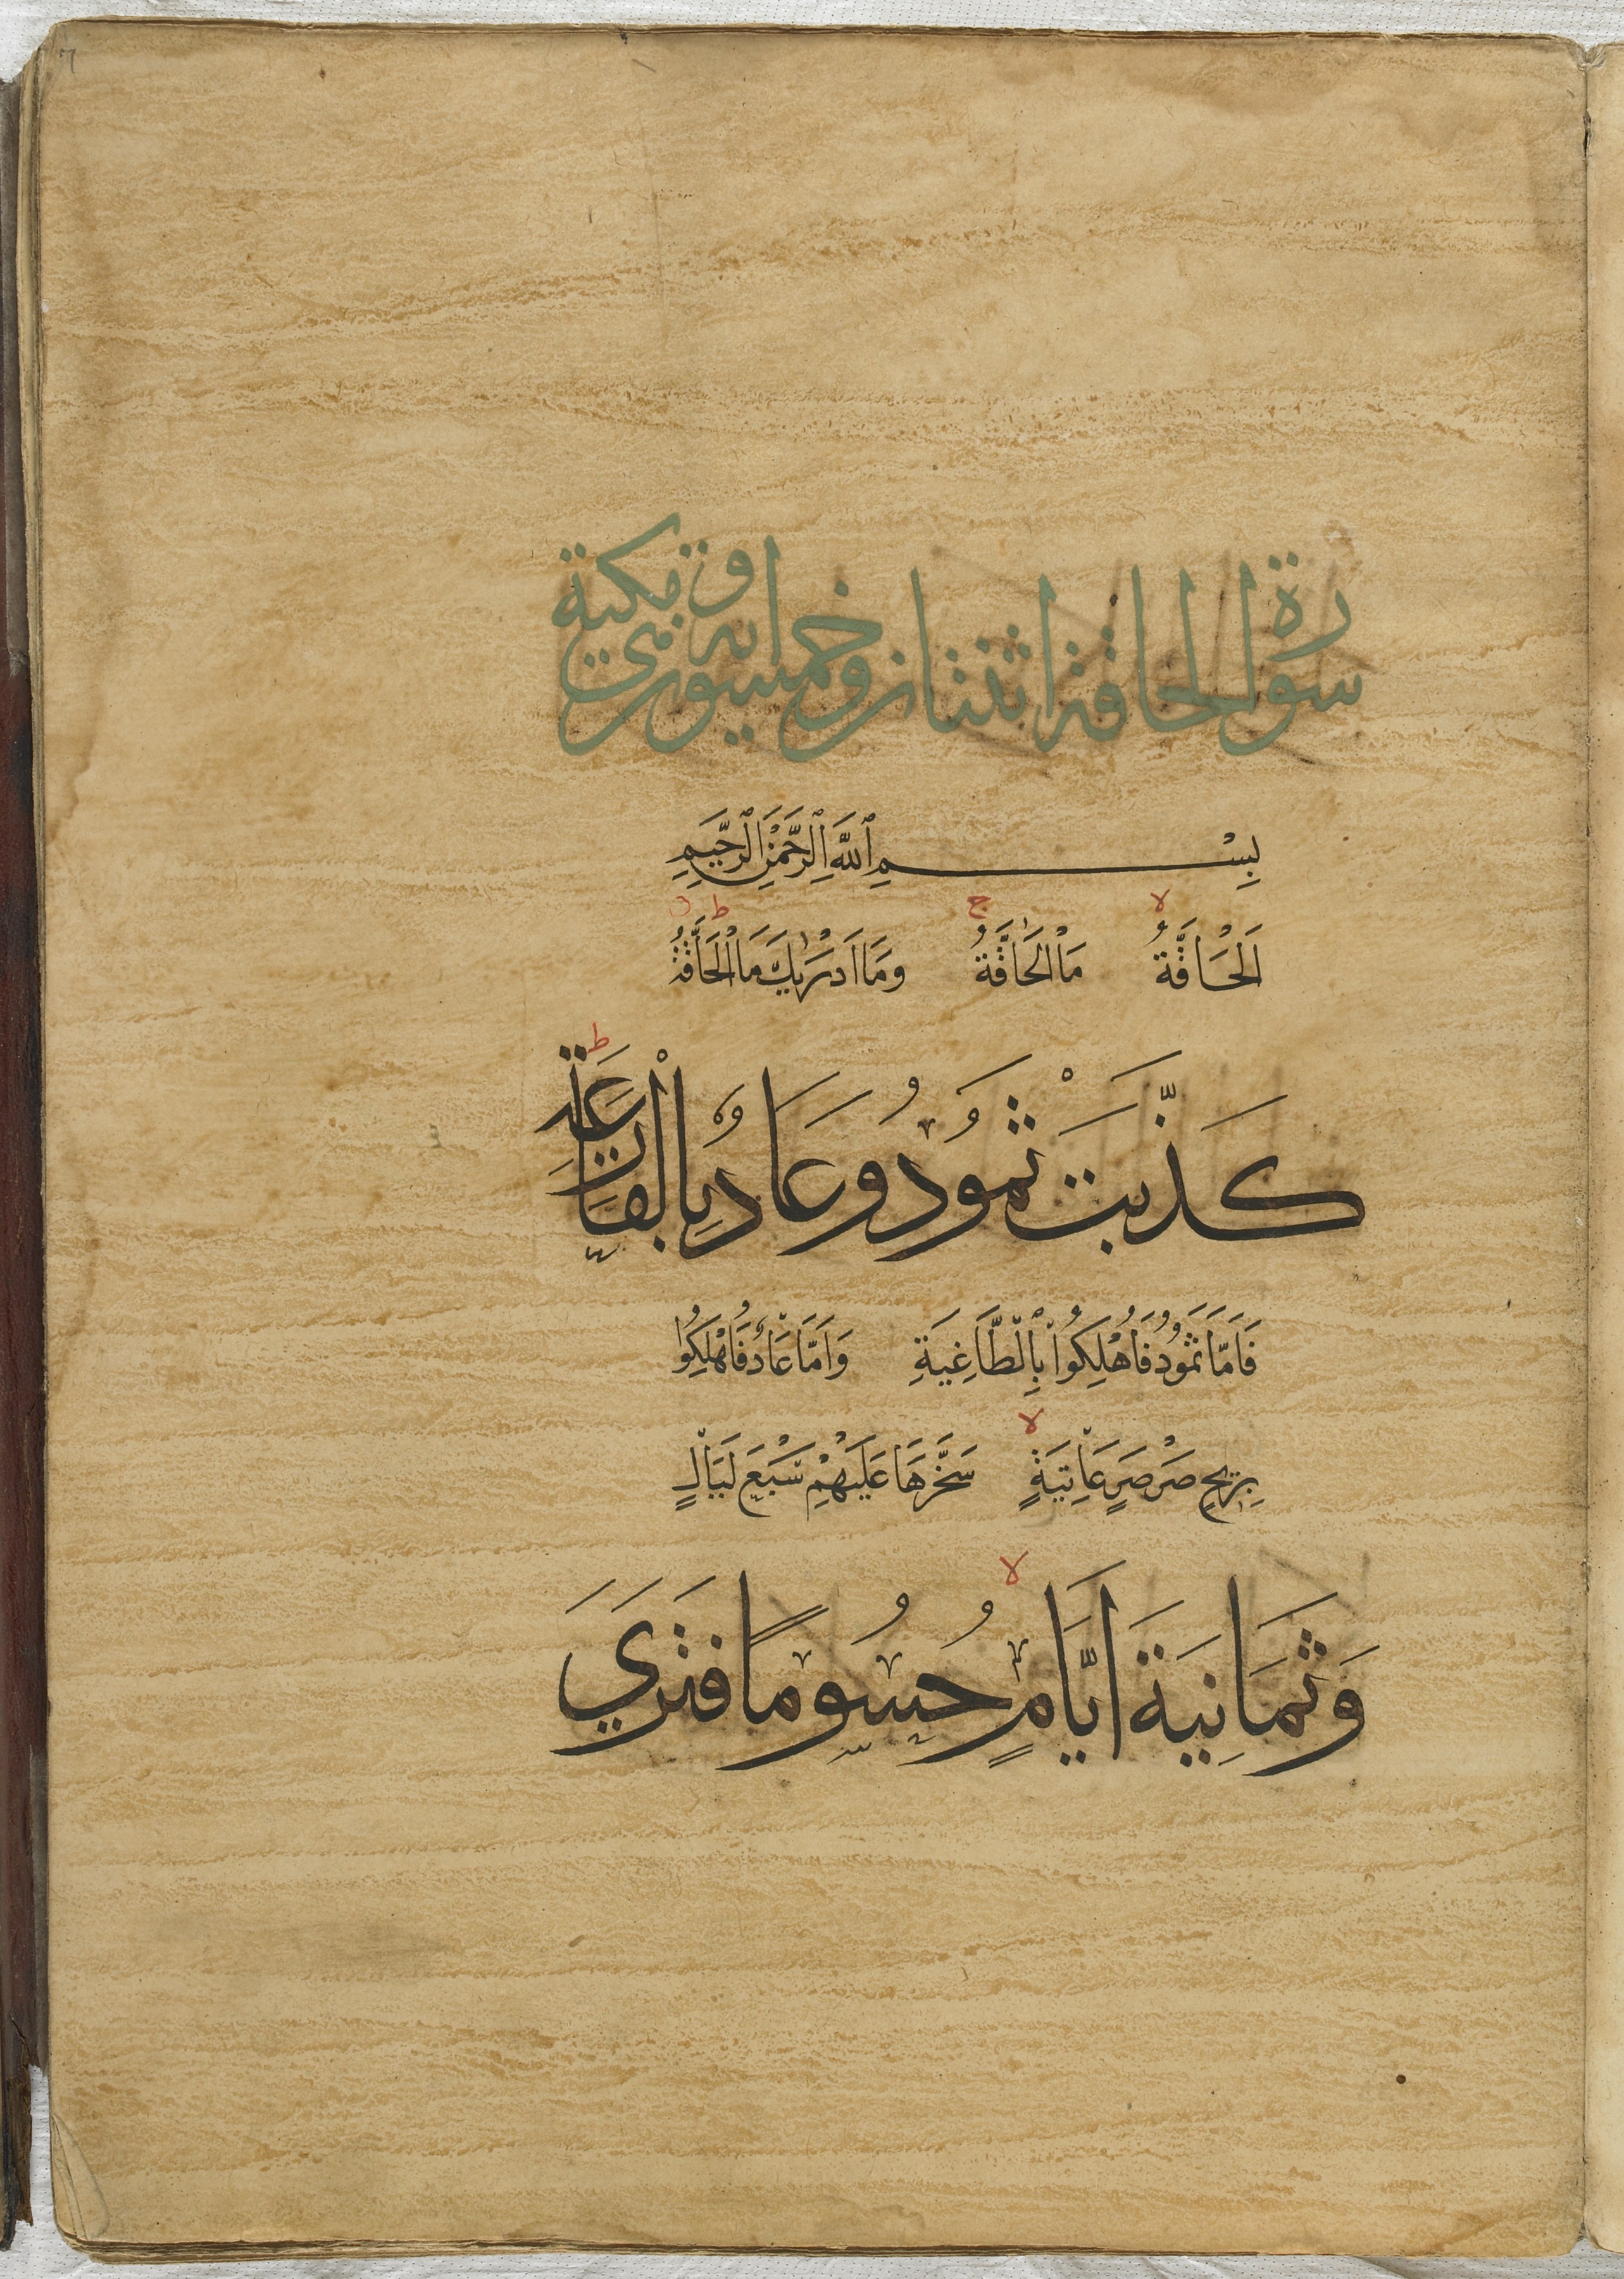 سورة الحاقة اثنتان وخمسون اية مكية
بِسْمِ ٱللَّهِ ٱلرَّحْمٰنِ ٱلرَّحِيمِ
اَلْحَاقَّةُ مَا الْحَاقَّةُ وَمَا اَدْرٰيكَ مَا الْحَاقَّةُ
كَذَّبَتْ ثَمُودُ وَعَادٌ بِالْقَارِعَةِ
فَاَمَّا ثَمُودُ فَاُهْلِكُوا بِالطَّاغِيَةِ وَاَمَّا عَادٌ فَاُهْلِكُوا
بِرِيحٍ صَرْصَرٍ عَاتِيَةٍ سَخَّرَهَا عَلَيْهِمْ سَبْعَ لَيَالٍ
وَثَمَانِيَةَ اَيَّامٍ حُسُومًا فَتَرَى